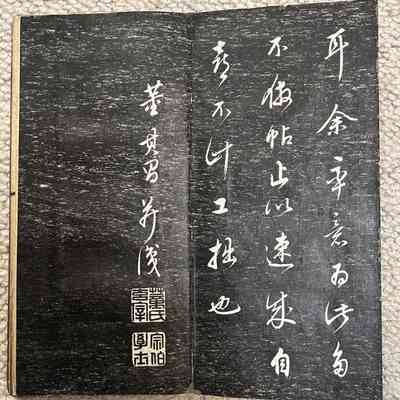 耳余率意為此多
不倣帖止以速成自
喜不計工拙也
董其昌并識
董氏玄宰
宗伯學士